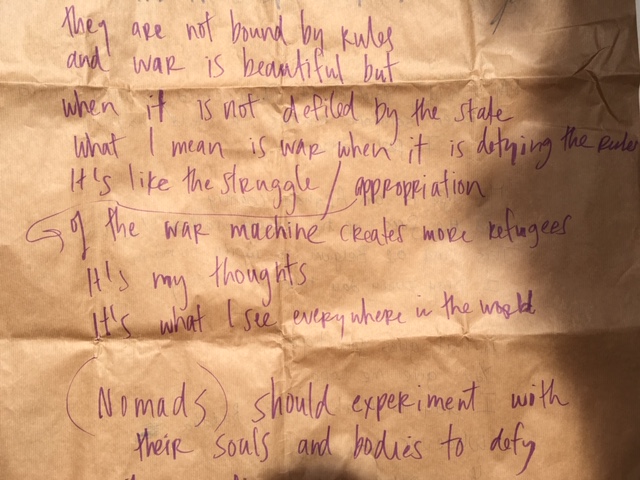 they are not bound by rules
and war is beautiful but
when it is not defiled by the state
What I mean is war when it is defying the rules
It's like the struggle / appropriation
of the war machine creates more refugees
It's my thoughts
It's what I see everywhere in the world
(Nomads) should experiment with
their souls and bodies to defy